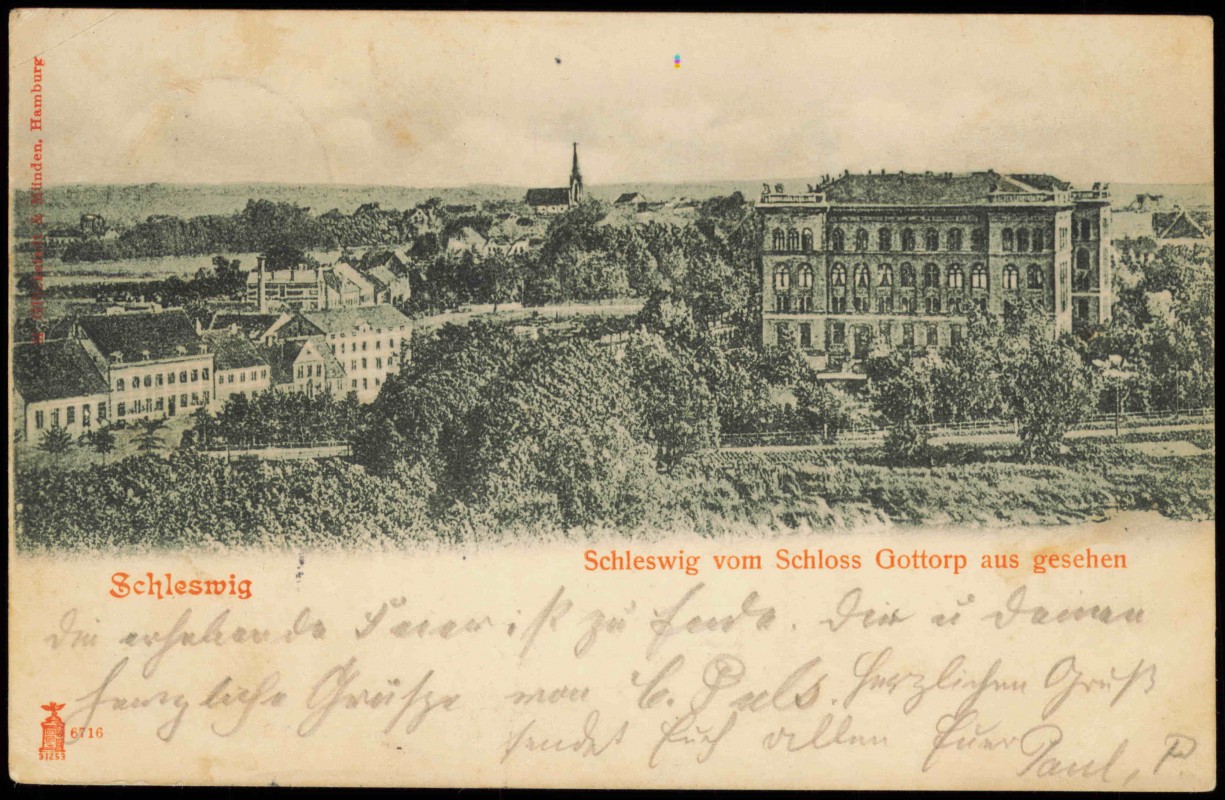 & Münden, Hamburg
Schleswig vom Schloss Gottorp aus gesehen
Schleswig
die erhebende Feier ist zu Ende. Dir u deinen
herzliche Grüsze von C. Puls. Herzlichen Gruß
sendet Euch allen Euer Paul, P.
6716
51253